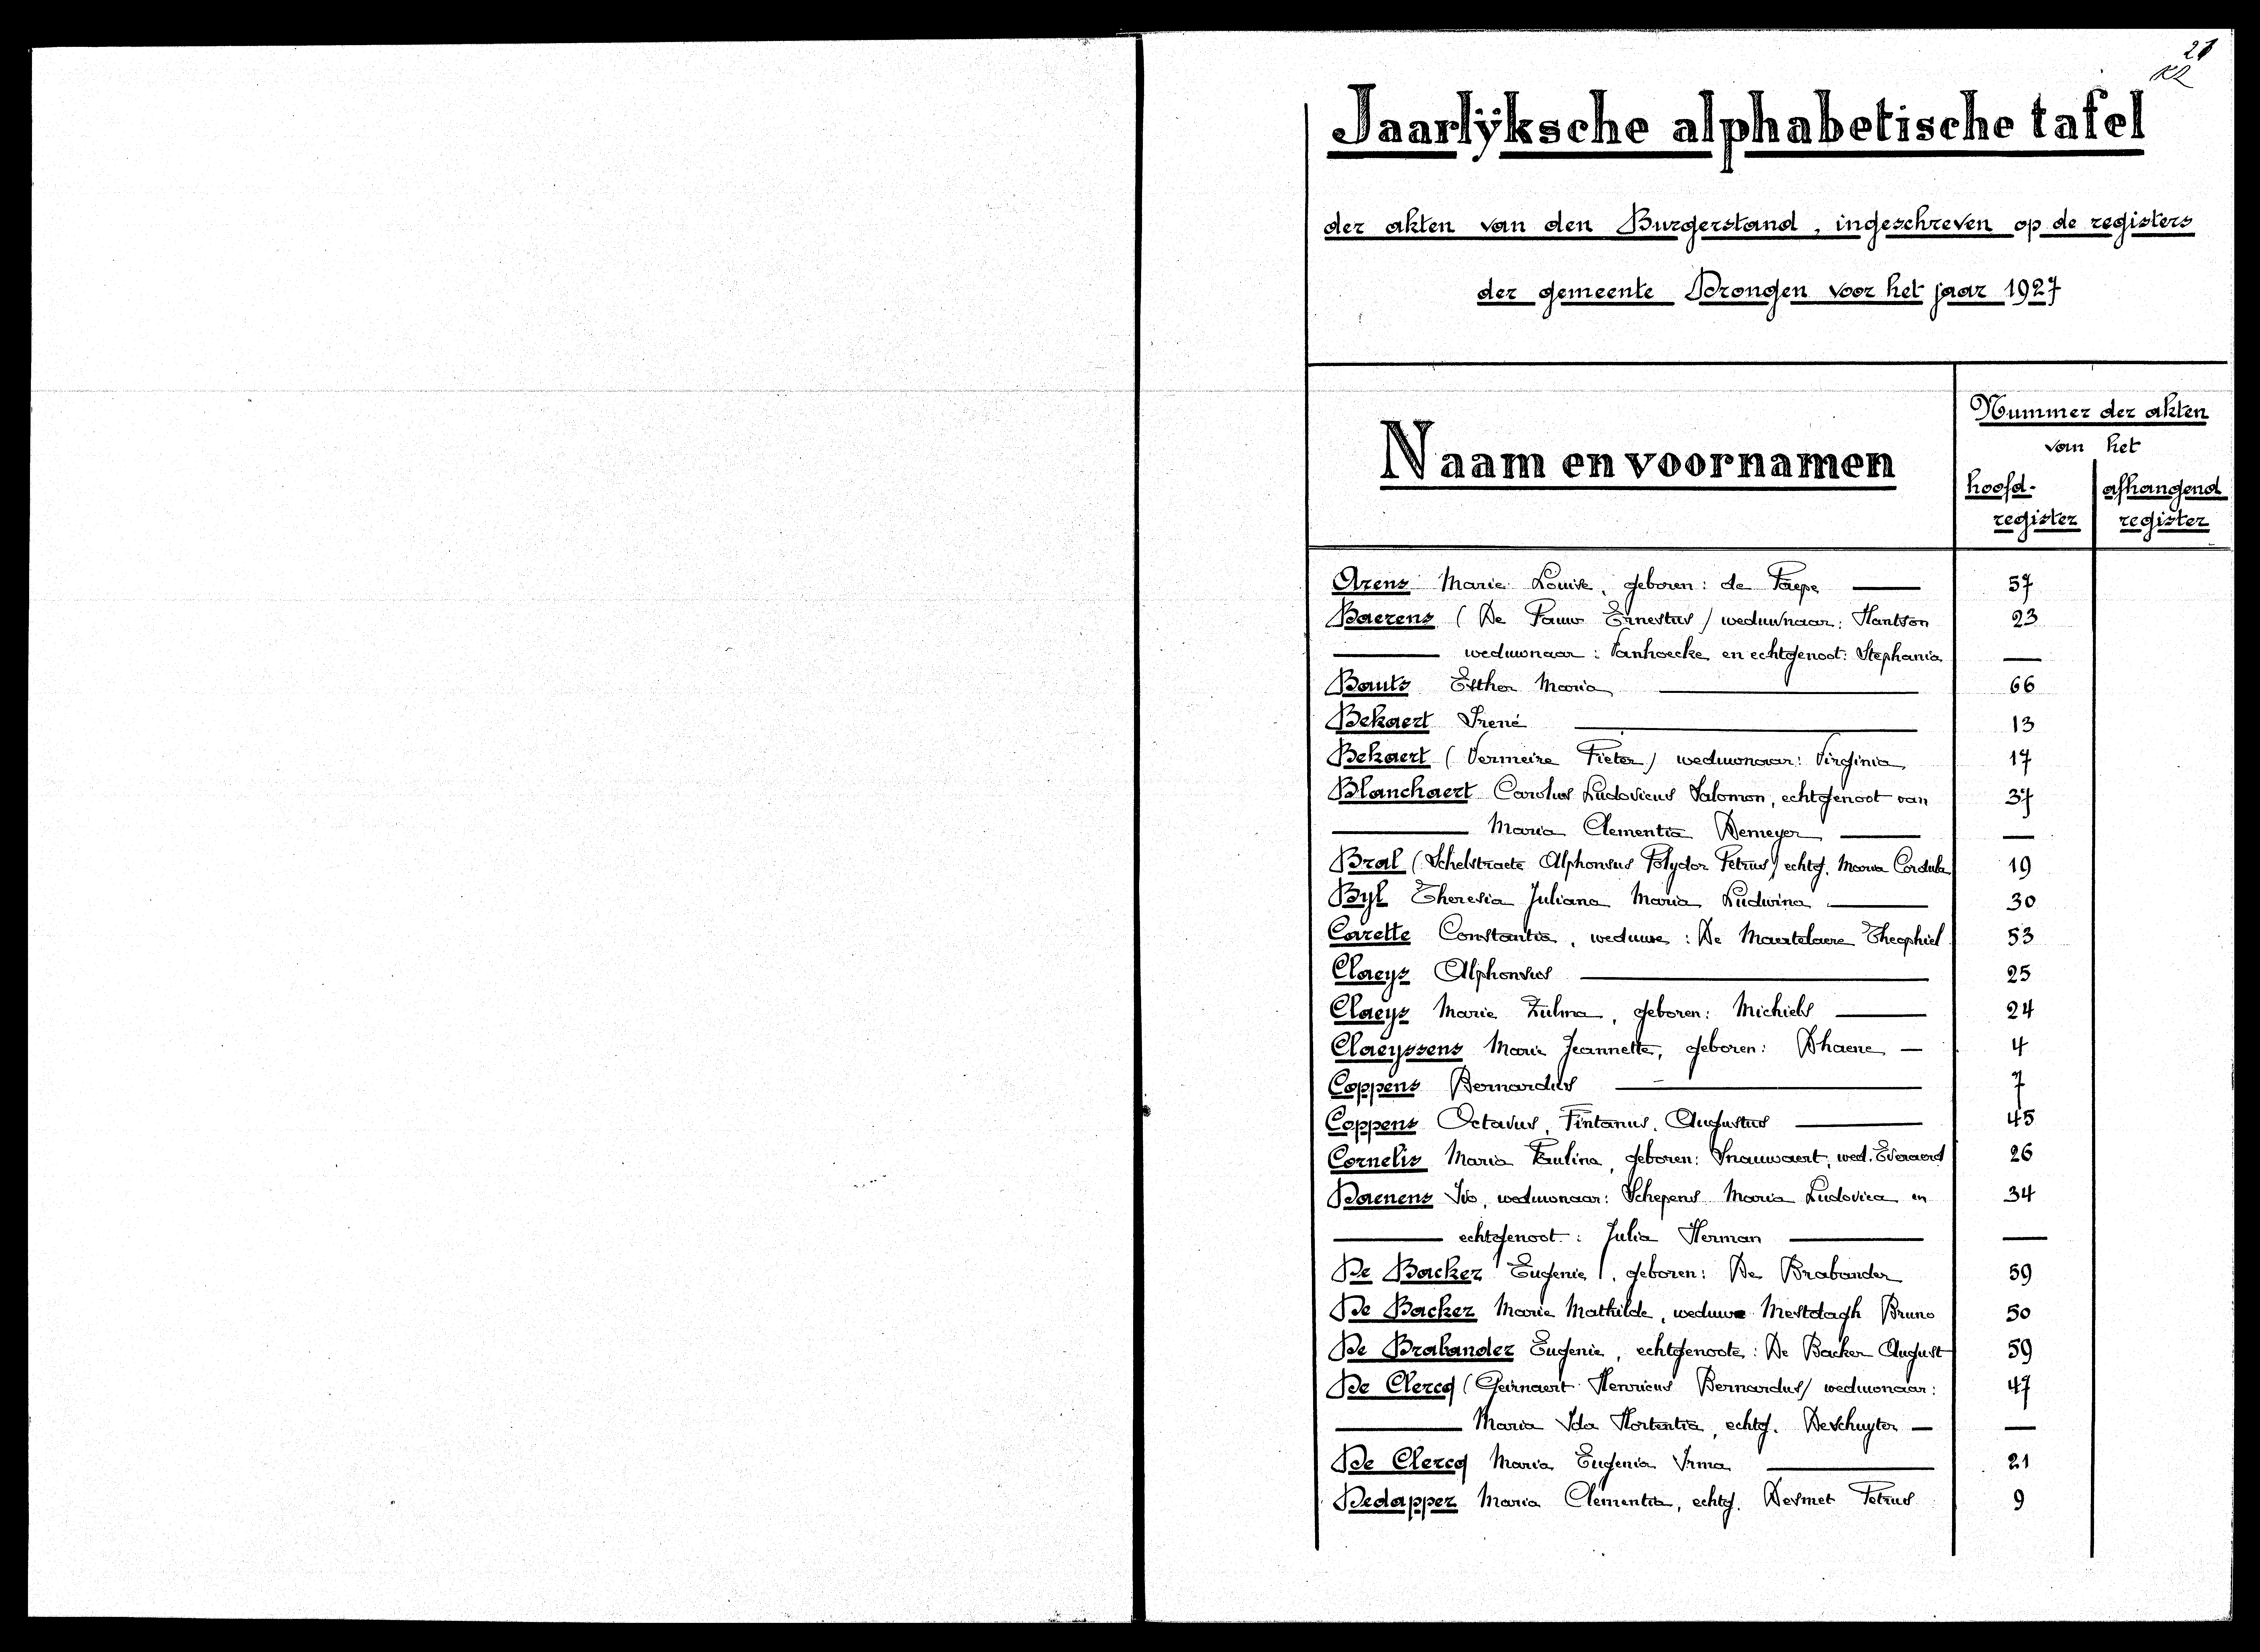 21
Jaarlÿksche alphabetische tafel
der akten van den Burgerstand, ingeschreven op de registers
der gemeente Drongen voor het jaar 1927
Nummer der akten
van het
Naam en voornamen
hoofd- afhangend
register register
Arens Marie Louise, geboren: de Paepe — 57
Baerens (De Pauw Ernestus) weduwnaar: Hantson 23
— weduwnaar: Vanhoecke en echtgenoot: Stephania —
Bauts Esther Maria — 66
Bekaert Irené — 13
Bekaert (Vermeire Pieter) weduwnaar: Virginia 17
Blanchaert Carolus Ludovicus Salomon, echtgenoot van 37
— Maria Clementia Demeyer — —
Bral (Schelstraete Alphonsus Polydor Petrus) echtg. Maria Cordula 19
Byl Theresia Juliana Maria Ludwina — 30
Carette Constantia, weduwe: De Maertelaere Theophiel 53
Claeys Alphonsus — 25
Claeys Marie Zulma, geboren: Michiels — 24
Claeyssens Marie Jeannette, geboren: Dhaene — 4
Coppens Bernardus — 7
Coppens Octavus, Pintanus, Augustus — 45
Cornelis Maria Paulina, geboren: Snauwaert, wed. Everaerd 26
Daenens Ivo, weduwnaar: Schepens Maria Ludovica en 34
— echtgenoot: Julia Herman — —
De Backer Eugenie, geboren: De Brabander 59
De Backer Marie Mathilde, weduwe Mestdagh Bruno 50
De Brabander Eugenie, echtgenoote: De Backer August 59
De Clercq (Geirnaert Henricus Bernardus) weduwnaar: 47
— Maria Ida Hortentia, echtg. Deschuyter — —
De Clercq Maria Eugenia Irma — 21
Dedapper Maria Clementia, echtg. Desmet Petrus 9